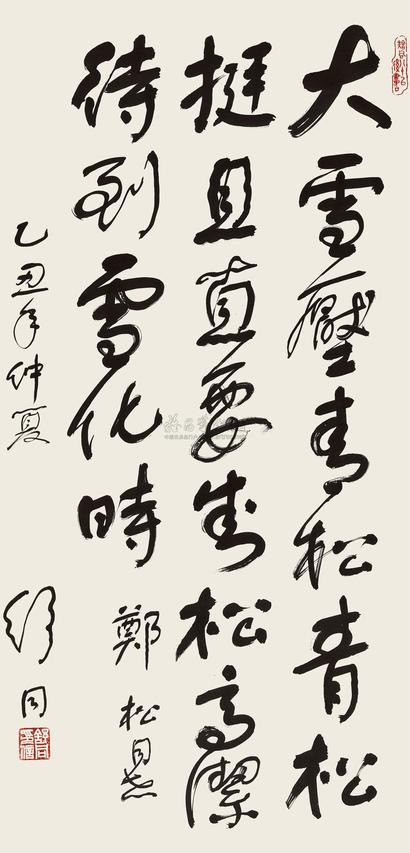 大雪壓青松青松
挺且直要知松高潔
待到雪化時
鄭松同志
乙丑年仲夏
舒同